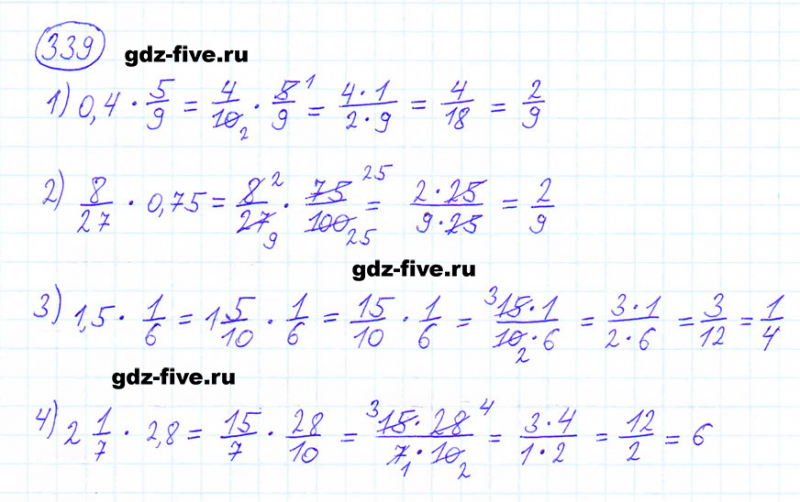 339 gdz-five.ru
1) 0,4 · 5/9 = 4/10 2 · 5/9 1 = 4·1/2·9 = 4/18 = 2/9
2) 8/27 · 0,75 = 8 2/27 9 · 75 25/100 25 = 2·25/9·25 = 2/9
gdz-five.ru
3) 1,5 · 1/6 = 1 5/10 · 1/6 = 15/10 · 1/6 = 3 15·1/10 2·6 = 3·1/2·6 = 3/12 = 1/4
gdz-five.ru
4) 2 1/7 · 2,8 = 15/7 · 28/10 = 3 15·28 4/7 1·10 2 = 3·4/1·2 = 12/2 = 6